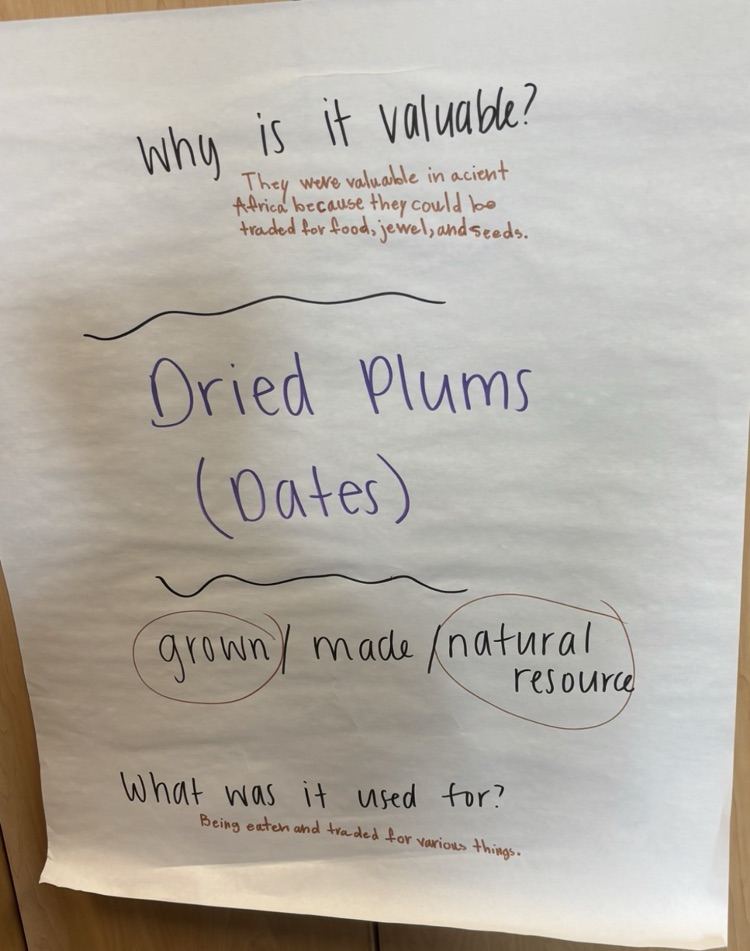 Why is it valuable?
They were valuable in acient
Africa because they could be
traded for food, jewel, and seeds.
Dried Plums
(Dates)
grown / made / natural
resource
What was it used for?
Being eaten and traded for various things.